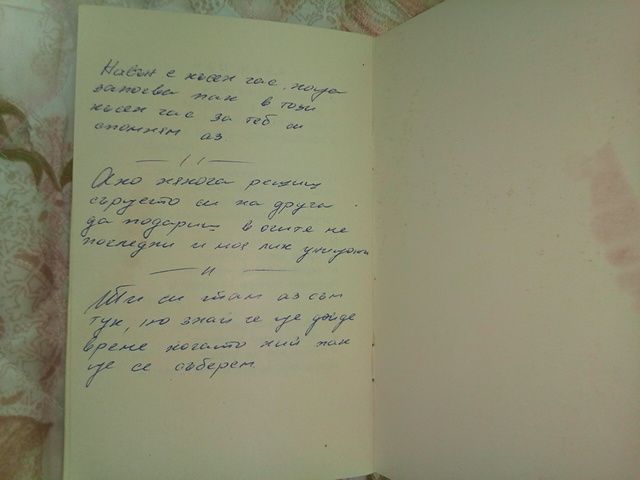 Навън е късен час, нощ
започва пак в този
късен час за теб си
спомням аз.
Ако някога решиш
сърцето си на друга
да подариш в очите не
погледни и моя лик унищожи
Ти си там аз съм
тук, но знай че ще дойде
време когато ний пак
ще се съберем.